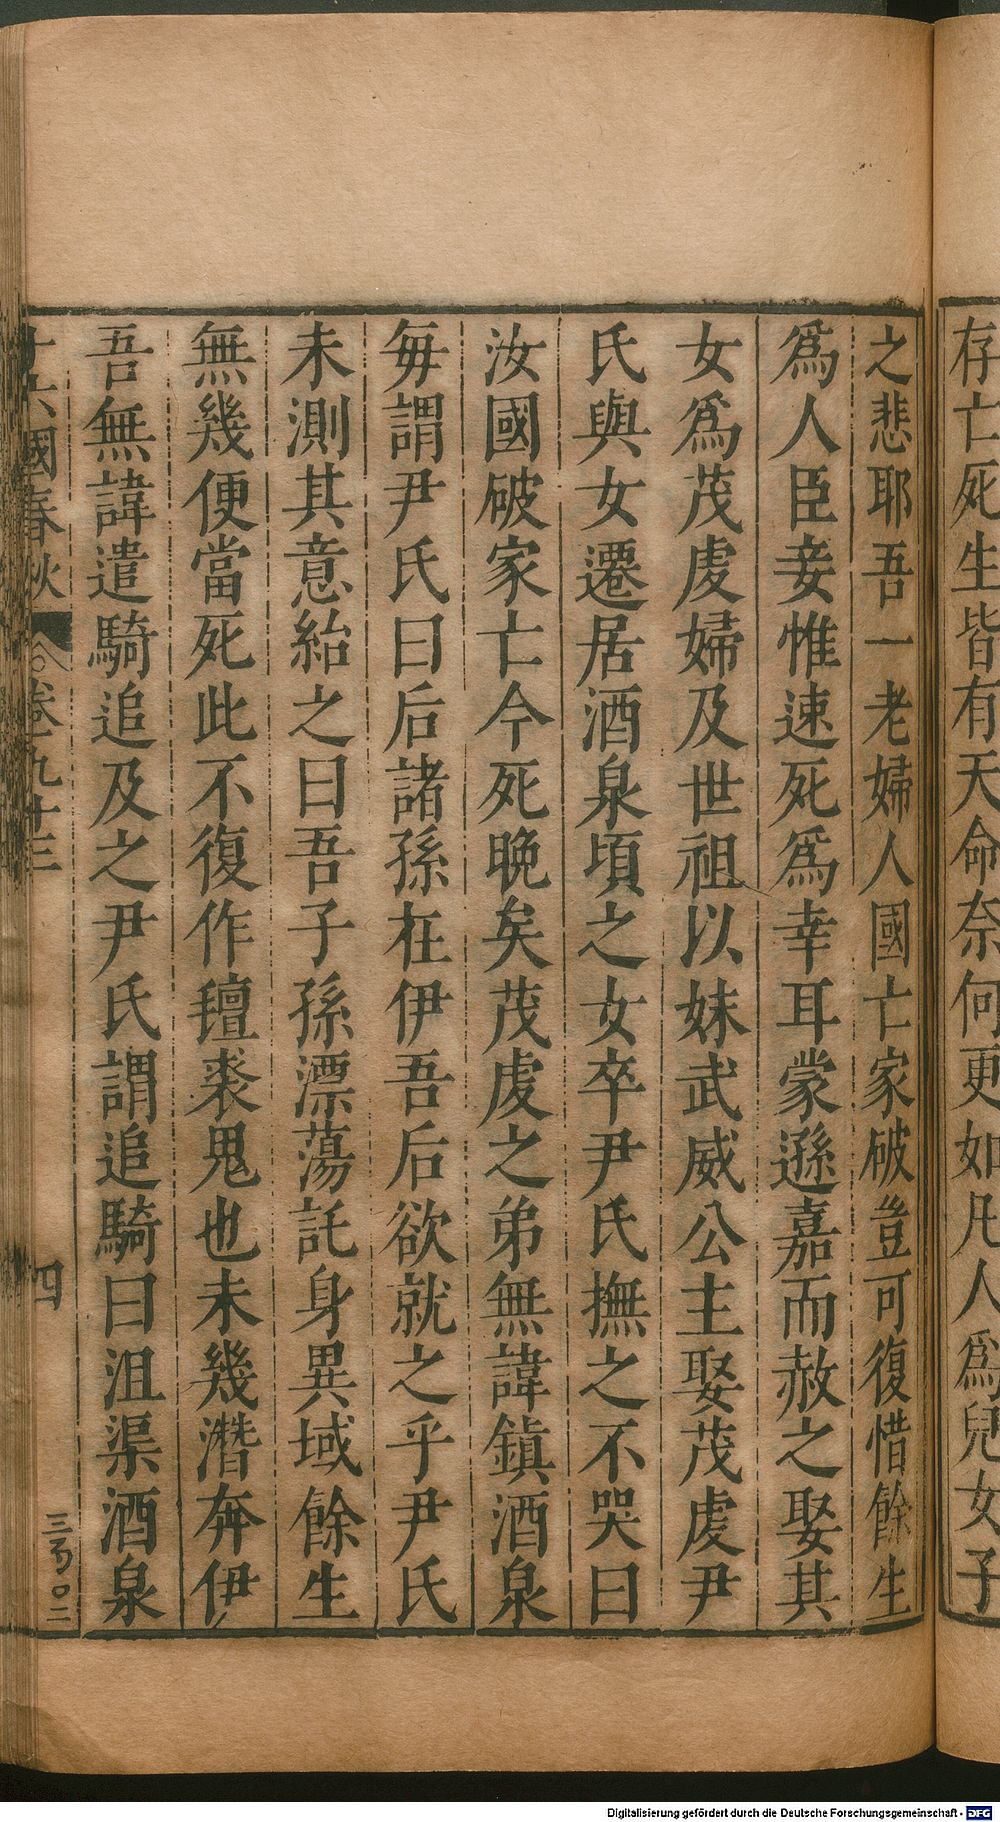 存亡死生皆有天命奈何更如凡人爲兒女子
之悲耶吾一老婦人國亡家破豈可復惜餘生
爲人臣妾惟速死爲幸耳蒙遜嘉而赦之娶其
女爲茂虔婦及世祖以妹武威公主娶茂虔尹
氏與女遷居酒泉頃之女卒尹氏撫之不哭曰
汝國破家亡今死晚矣茂虔之弟無諱鎮酒泉
每謂尹氏曰后諸孫在伊吾后欲就之乎尹氏
未測其意紿之曰吾子孫漂蕩託身異域餘生
無幾便當死此不復作氊裘鬼也未幾潛奔伊
吾無諱遣騎追及之尹氏謂追騎曰沮渠酒泉
十六國春秋 卷九十三 四 三百〇二
Digitalisierung gefördert durch die Deutsche Forschungsgemeinschaft - DFG